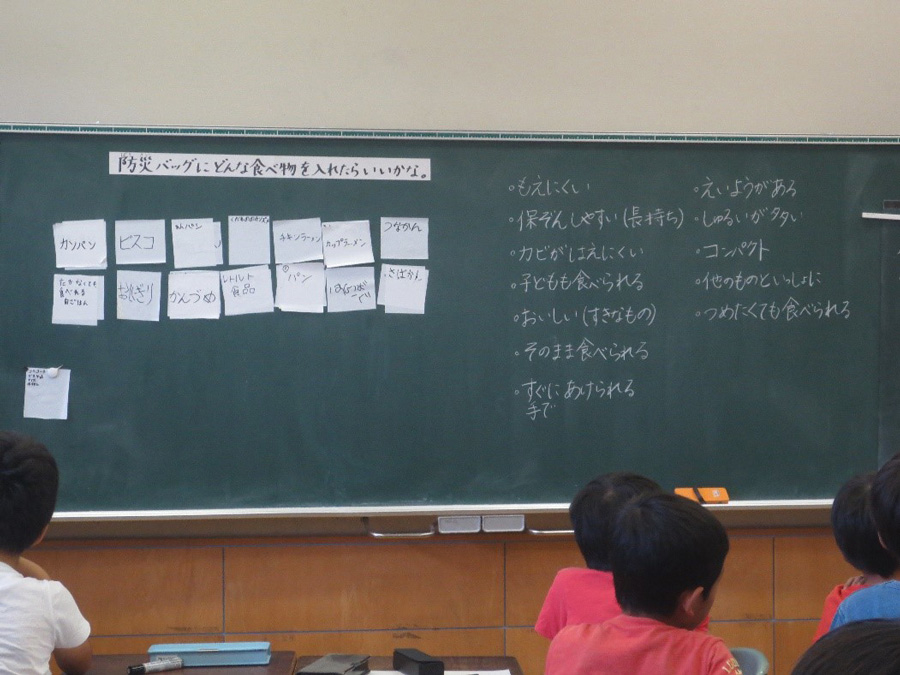 防災バッグにどんな食べ物を入れたらいいかな。
カンパン
ビスコ
カンパン
チキンラーメン
カップラーメン
つなかん
たかなくても
食べれる
白ごはん
おにぎり
かんづめ
レトルト
食品
①パン
さばかん
・もえにくい
・保ぞんしやすい(長持ち)
・カビがはえにくい
・子どもも食べられる
・おいしい(すきなもの)
・そのまま食べられる
・すぐにあけられる
手で
・えいようがある
・しゅるいがタタい
・コンパクト
・他のものといっしょに
・つめたくても食べられる